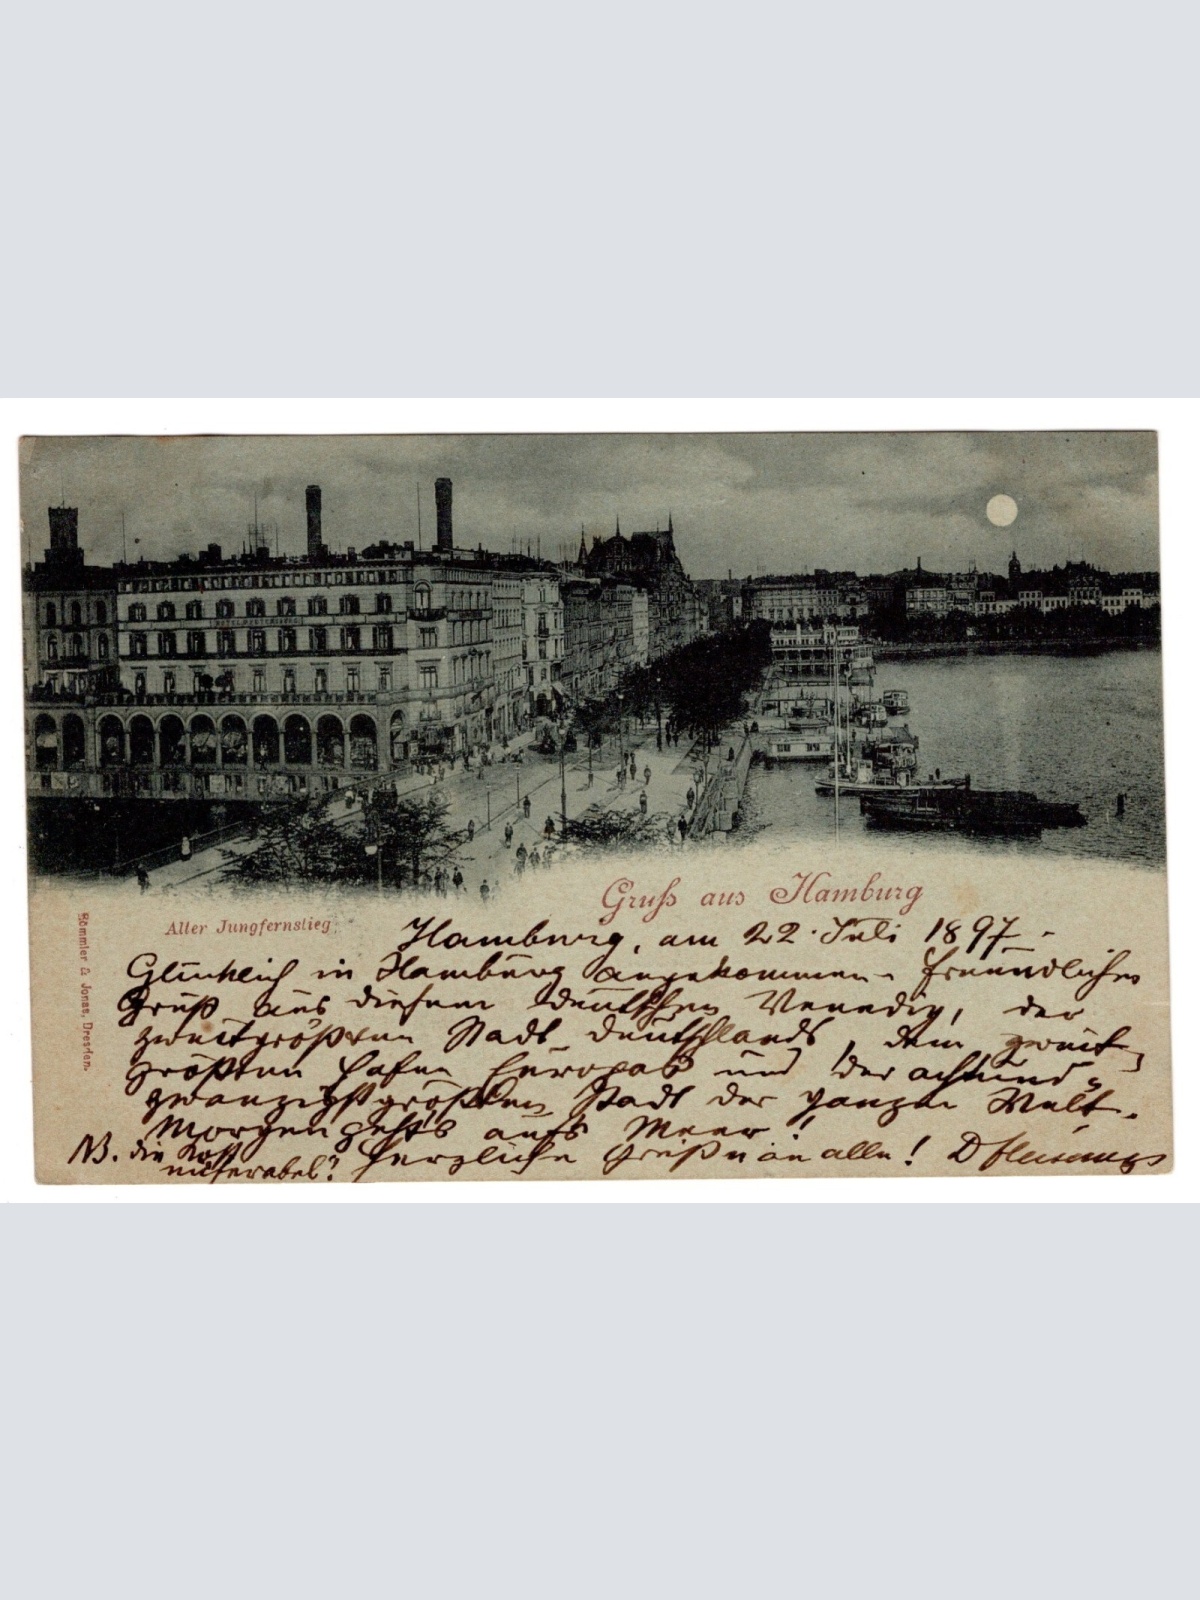 Gruß aus Hamburg
Alter Jungfernstieg.
Römmler & Jonas, Dresden.
Hamburg, am 22. Juli 1897.
Glücklich in Hamburg angekommen. Freundlichen
Gruß aus diesem deutschen Venedig, der
zweitgrößten Stadt Deutschlands, dem zweit-
größten Hafen Europas und der achtund-
zwanzigstgrößten Stadt der ganzen Welt.
Morgen gehts aufs Meer!
NB. die Kost
miserabel! Herzliche Grüße an alle!